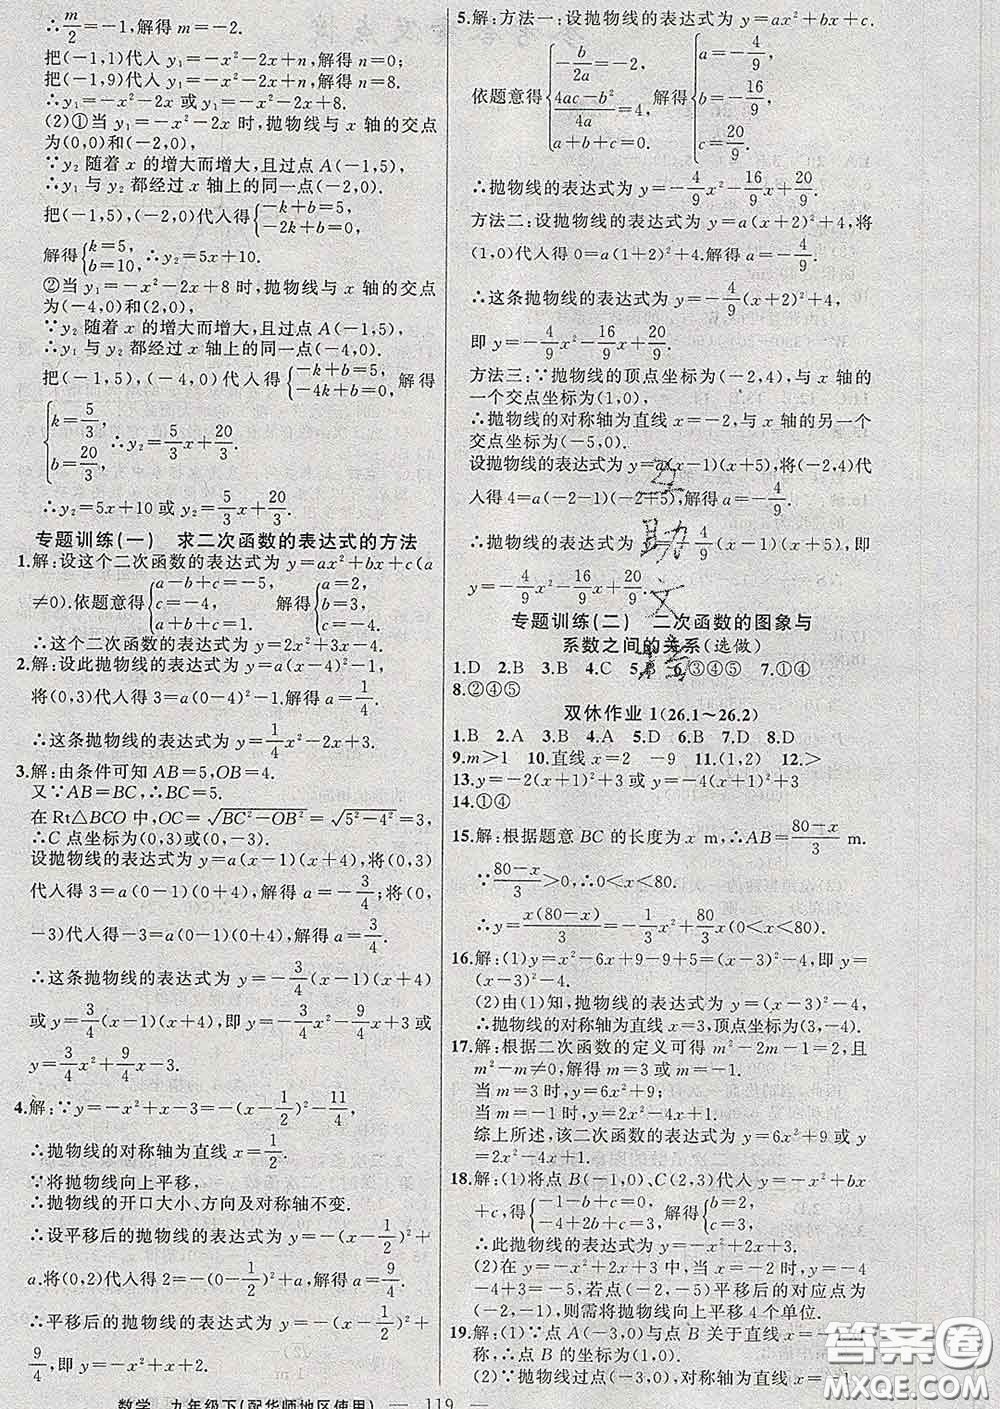 ∴m/2=-1,解得 m=-2.
把(-1,1)代入 y₁=-x²-2x+n,解得 n=0;
把(-1,9)代入 y₁=-x²-2x+n,解得 n=8.
∴y₁=-x²-2x 或 y₁=-x²-2x+8.
(2)①当 y₁=-x²-2x 时,抛物线与 x 轴的交点
为(0,0)和(-2,0),
∵y₂ 随着 x 的增大而增大,且过点 A(-1,5),
∴y₁ 与 y₂ 都经过 x 轴上的同一点(-2,0),
把(-1,5),(-2,0)代入得{-k+b=5, -2k+b=0,
解得{k=5, b=10. ∴y₂=5x+10.
②当 y₁=-x²-2x+8 时,抛物线与 x 轴的交点
为(-4,0)和(2,0),
∵y₂ 随着 x 的增大而增大,且过点 A(-1,5),
∴y₁ 与 y₂ 都经过 x 轴上的同一点(-4,0),
把(-1,5),(-4,0)代入得{-k+b=5, -4k+b=0, 解得
{k=5/3, b=20/3. ∴y₂=5/3x+20/3.
∴y₂=5x+10 或 y₂=5/3x+20/3.
专题训练(一) 求二次函数的表达式的方法
1.解:设这个二次函数的表达式为 y=ax²+bx+c(a
≠0).依题意得{a-b+c=-5, c=-4, a+b+c=1. 解得{a=2, b=3, c=-4.
∴这个二次函数的表达式为 y=2x²+3x-4.
2.解:设此抛物线的表达式为 y=a(x-4)²-1,
将(0,3)代入得 3=a(0-4)²-1,解得 a=1/4.
∴这条抛物线的表达式为 y=1/4x²-2x+3.
3.解:由条件可知 AB=5,OB=4.
又∵AB=BC,∴BC=5.
在 Rt△BCO 中,OC=√(BC²-OB²)=√(5²-4²)=3,
∴C 点坐标为(0,3)或(0,-3).
设抛物线的表达式为 y=a(x-1)(x+4),将(0,3)
代入得 3=a(0-1)(0+4),解得 a=-3/4;将(0,
-3)代入得-3=a(0-1)(0+4),解得 a=3/4.
∴这条抛物线的表达式为 y=-3/4(x-1)(x+4)
或 y=3/4(x-1)(x+4),即 y=-3/4x²-9/4x+3 或
y=3/4x²+9/4x-3.
4.解:∵y=-x²+x-3=-(x-1/2)²-11/4,
∴抛物线的对称轴为直线 x=1/2.
∵将抛物线向上平移,
∴抛物线的开口大小、方向及对称轴不变.
∴设平移后的抛物线的表达式为 y=-(x-1/2)²+
a.将(0,2)代入得 2=-(0-1/2)²+a,解得 a=9/4.
∴平移后的抛物线的表达式为 y=-(x-1/2)²+
9/4,即 y=-x²+x+2.
5.解:方法一:设抛物线的表达式为 y=ax²+bx+c.
依题意得{-b/2a=-2, (4ac-b²)/4a=4, a+b+c=0. 解得{a=-4/9, b=-16/9, c=20/9.
∴抛物线的表达式为 y=-4/9x²-16/9x+20/9.
方法二:设抛物线的表达式为 y=a(x+2)²+4,将
(1,0)代入得 0=a(1+2)²+4.解得 a=-4/9.
∴这条抛物线的表达式为 y=-4/9(x+2)²+4,
即 y=-4/9x²-16/9x+20/9.
方法三:∵抛物线的顶点坐标为(-2,4),与 x 轴的
一个交点坐标为(1,0),
∴抛物线的对称轴为直线 x=-2,与 x 轴的另一个
交点坐标为(-5,0).
设抛物线的表达式为 y=a(x-1)(x+5),将(-2,4)代
入得 4=a(-2-1)(-2+5),解得 a=-4/9.
∴抛物线的表达式为 y=-4/9(x-1)(x+5),即
y=-4/9x²-16/9x+20/9.
专题训练(二) 二次函数的图象与
系数之间的关系(选做)
1.D 2.B 3.B 4.C 5.B 6.③④⑤ 7.①④
8.②④⑤
双休作业 1(26.1～26.2)
1.B 2.A 3.B 4.A 5.D 6.B 7.D 8.D
9.m>1 10.直线 x=2 -9 11.(1,2) 12.>
13.y=-2(x+1)²+3 或 y=-4(x+1)²+3
14.①④
15.解:根据题意 BC 的长度为 x m,∴AB=(80-x)/3 m.
∵(80-x)/3>0,∴0<x<80.
∴y=x(80-x)/3=-1/3x²+80/3x(0<x<80).
16.解:(1)y=x²-6x+9-9+5=(x-3)²-4,即 y=
(x-3)²-4.
(2)由(1)知,抛物线的表达式为 y=(x-3)²-4,
∴抛物线的对称轴为直线 x=3,顶点坐标为(3,-4).
17.解:根据二次函数的定义可得 m²-2m-1=2,且
m²-m≠0,解得 m=3 或 m=-1.
当 m=3 时,y=6x²+9;
当 m=-1 时,y=2x²-4x+1.
综上所述,该二次函数的表达式为 y=6x²+9 或 y=
2x²-4x+1.
18.解:(1)将点 B(-1,0)、C(2,3)代入 y=-x²+bx
+c,得{-1-b+c=0, -4+2b+c=3, 解得{b=2, c=3.
∴此抛物线的表达式为 y=-x²+2x+3.
(2)在 y=-x²+2x+3 中,当 x=-2 时,y=-4-
4+3=-5,若点(-2,-5)平移后的对应点为
(-2,-1),则需将抛物线向上平移 4 个单位.
19.解:(1)∵点 A(-3,0)与点 B 关于直线 x=-1对
称,∴点 B 的坐标为(1,0).
(2)∵
数学 九年级下(配华师地区使用) — 119 —
作业帮文
答案圈
MXQE.COM